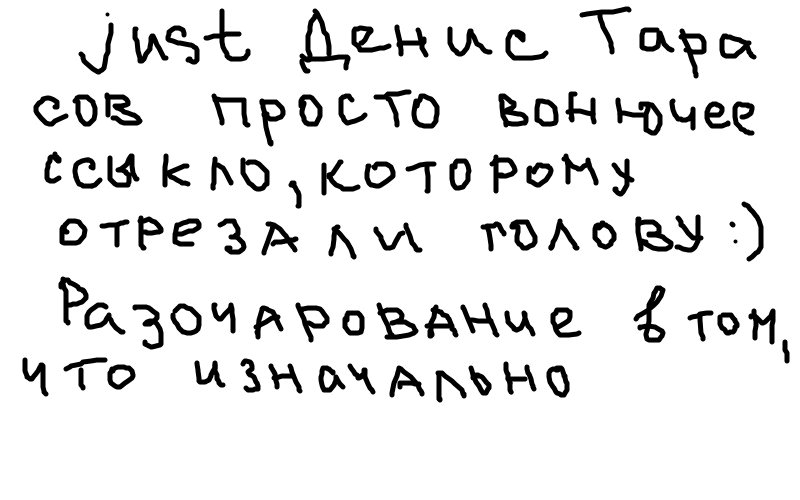 just Денис Тара
сов просто вонючее
ссыкло, которому
отрезали голову :)
Разочарование в том,
что изначально